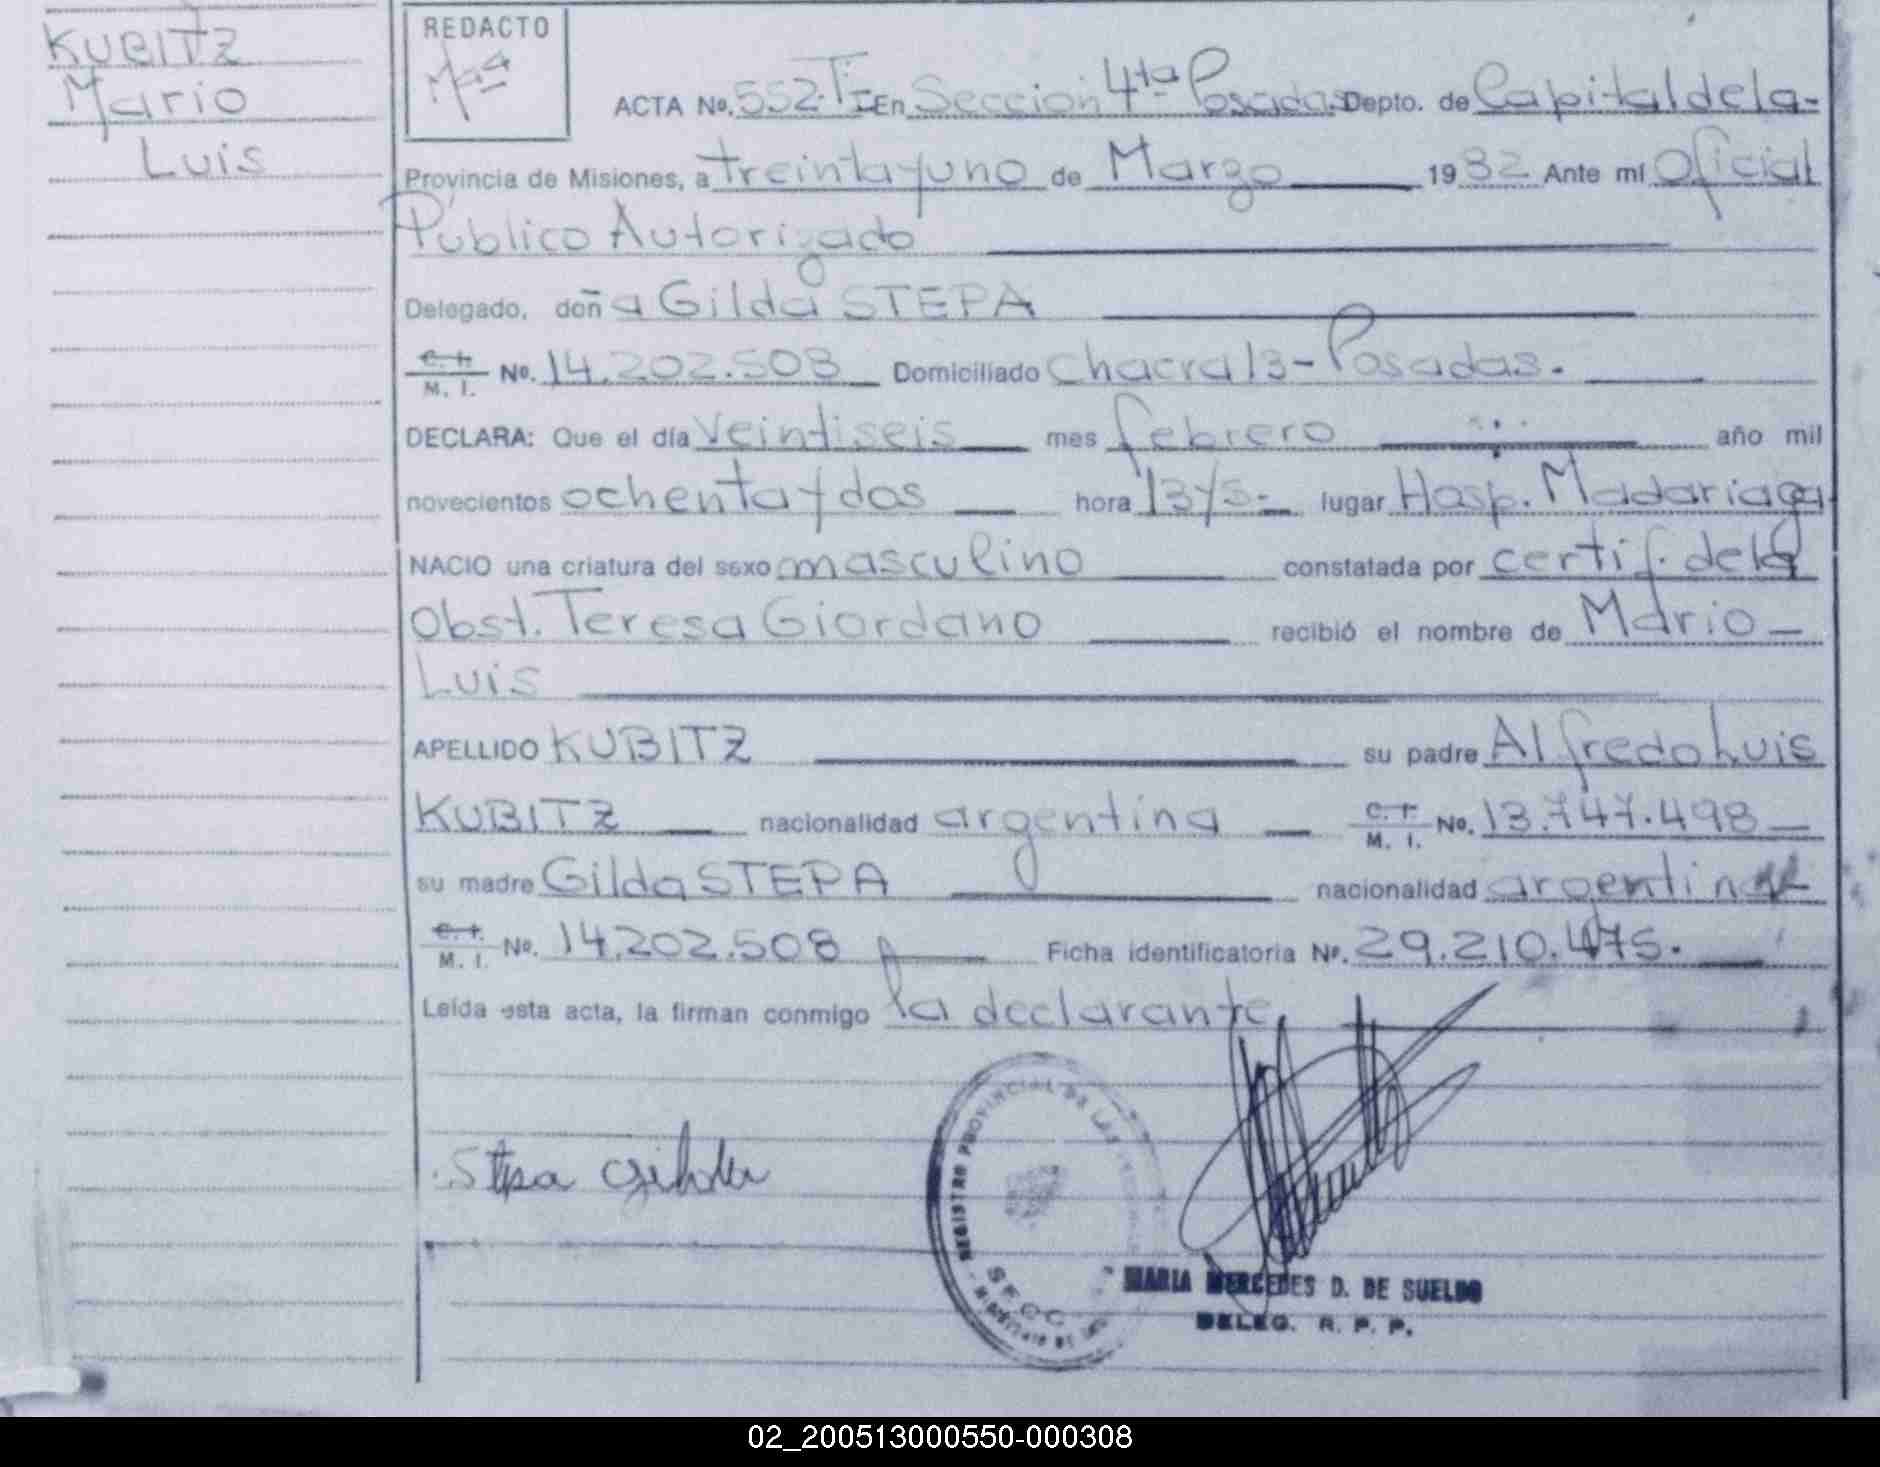 KUBITZ
Mario
Luis
REDACTO
Mª
ACTA Nº. 552-TI- En Seccion 4ta Posadas Depto. de Capital de la-
Provincia de Misiones, a treinta y uno de Marzo 1982 Ante mí Oficial
Público Autorizado
Delegado, doña Gilda STEPA
C. I.
M. I. Nº. 14.202.508 Domiciliado Chacra 13-Posadas.
DECLARA: Que el día veintiseis mes febrero año mil
novecientos ochenta y dos hora 13y5- lugar Hosp. Madariaga
NACIO una criatura del sexo masculino constatada por certif. de la
Obst. Teresa Giordano recibió el nombre de Mario
Luis
APELLIDO KUBITZ su padre Alfredo Luis
KUBITZ nacionalidad argentina C. I.
M. I. Nº. 13.747.498
su madre Gilda STEPA nacionalidad argentina
C. I.
M. I. Nº. 14.202.508 Ficha identificatoria Nº. 29.210.475.
Leída esta acta, la firman conmigo la declarante,
Stepa Gilda
REGISTRO PROVINCIAL DE LAS
MARIA MERCEDES D. DE SUELDO
DELEG. R. P. P.
02_200513000550-000308